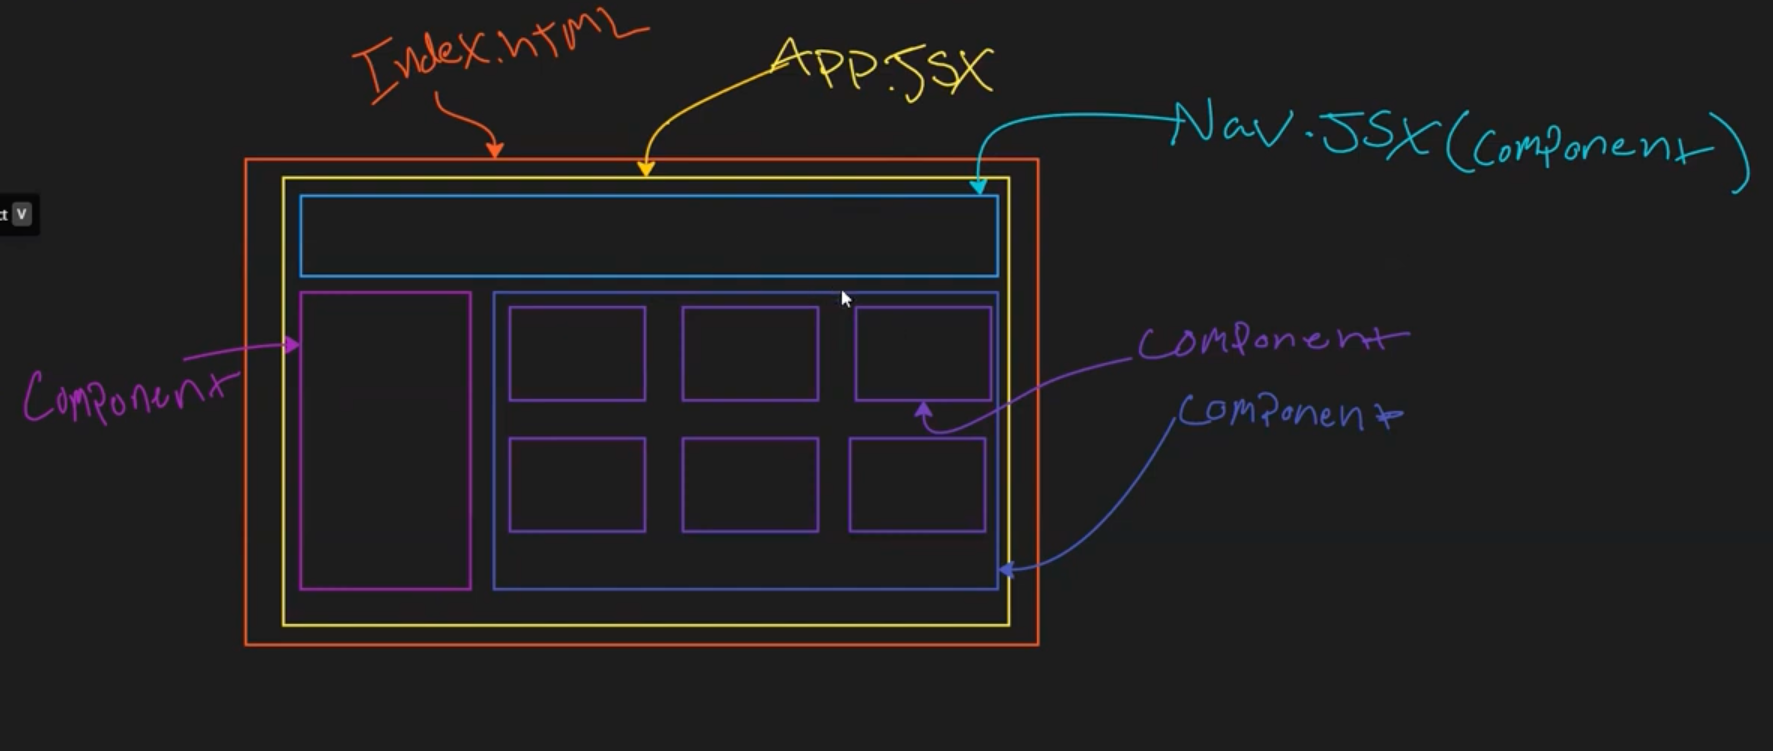 Index.html
App.JSX
Nav.JSX(Component)
ct V
Component
Component
Component